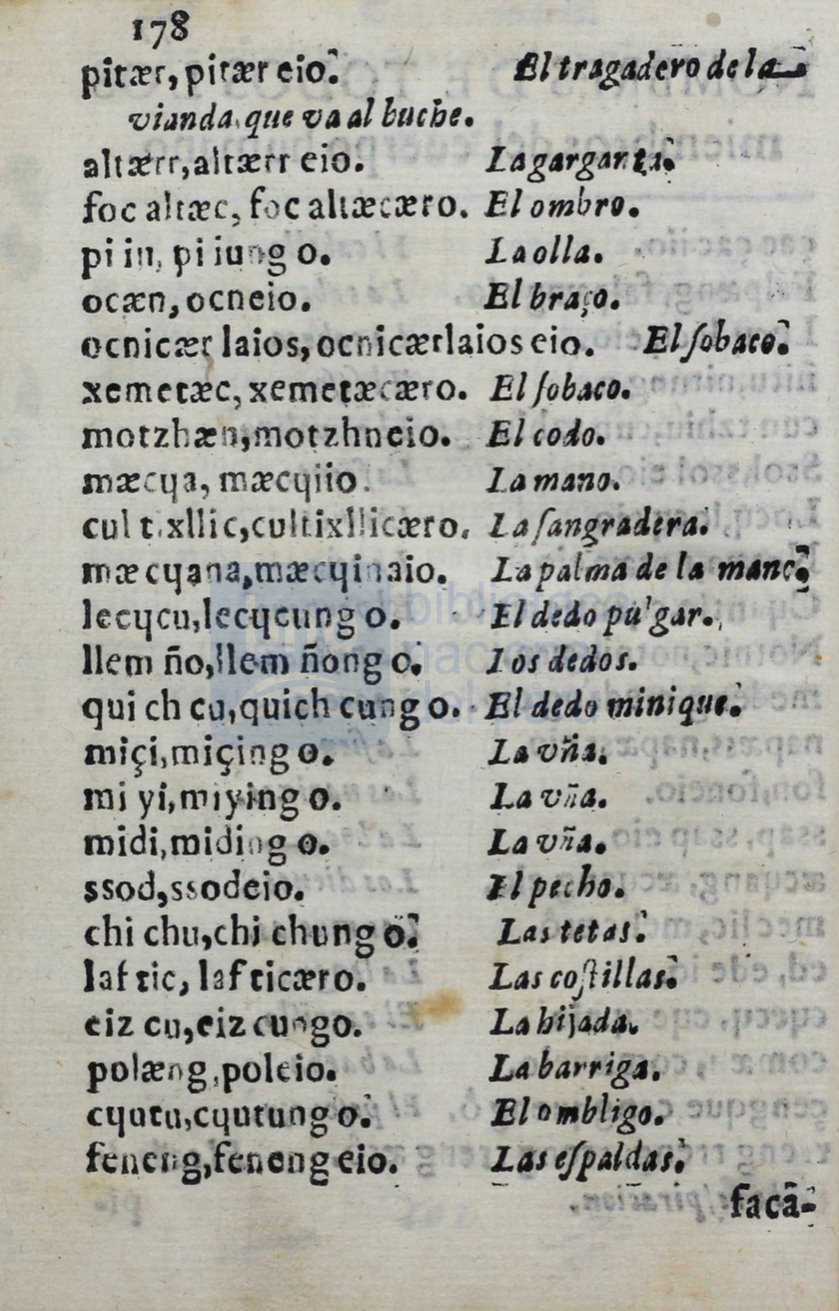 178
pitær, pitær eio. El tragadero de la
vianda que va al buche.
altærr, altærr eio. La garganta.
foc altæc, foc altæcæro. El ombro.
pi iu, pi iung o. La olla.
ocæn, ocneio. El braço.
ocnicær laios, ocnicærlaios eio. El ſobaco.
xemetæc, xemetæcæro. El ſobaco.
motzhæn, motzhneio. El codo.
mæcqa, mæcqiio. La mano.
cul tixllic, cultixllicæro. La ſangradera.
mæcqana, mæcqinaio. La palma de la mano.
lecqcu, lecqcung o. El dedo pulgar.
llem ño, llem ñong o. Los dedos.
qui ch cu, quich cung o. El dedo minique.
miçi, miçing o. La vña.
mi yi, miying o. La vña.
midi, miding o. La vña.
ssod, ssodeio. El pecho.
chi chu, chi chung o. Las tetas.
laf tic, laf ticæro. Las coſtillas.
eiz cu, eiz cungo. La hijada.
polæng, poleio. La barriga.
cqutu, cqutung o. El ombligo.
feneng, feneng eio. Las eſpaldas.
facã-